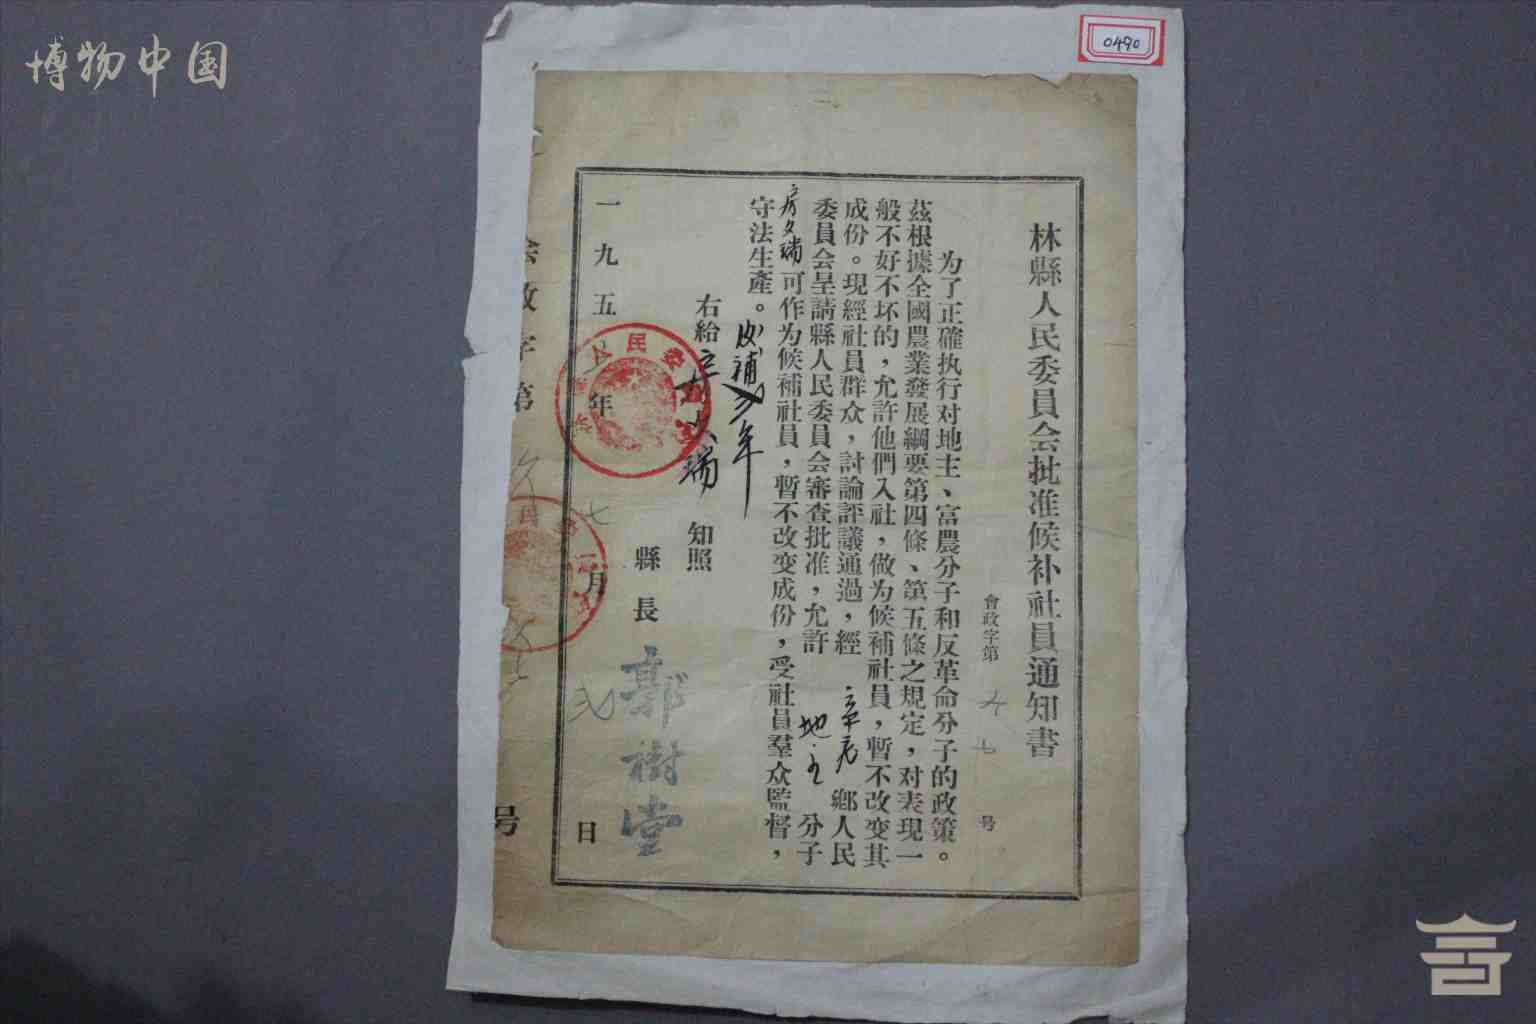 博物中国
0490
林縣人民委員会批准候补社員通知書
會政字第 九七 号
为了正確执行对地主、富農分子和反革命分子的政策。
茲根據全國農業發展綱要第四條、第五條之規定，对表現一
般不好不坏的，允許他們入社，做为候補社員，暫不改变其
成份。現經社員群众，討論評議通過，經 鄉人民
委員会呈請縣人民委員会審查批准，允許 地主 分子
房文瑞可作为候補社員，暫不改变成份，受社員羣众監督，
守法生產。
右給 瑞 知照
縣長 郭樹堂
一九五 年 七 月 弍 日
会政字第 号